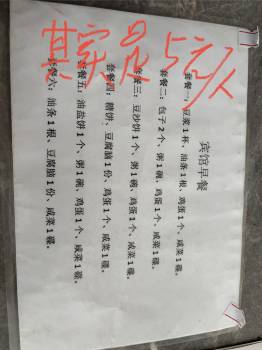 其实是5元/人
宾馆早餐
套餐一：豆浆1杯、油条1根、鸡蛋1个、咸菜1碟。
套餐二：包子2个、粥1碗、鸡蛋1个、咸菜1碟。
套餐三：豆沙饼1个、粥1碗、鸡蛋1个、咸菜1碟。
套餐四：糖饼、豆腐脑1份、鸡蛋1个、咸菜1碟。
套餐五：油盐饼1个、粥1碗、鸡蛋1个、咸菜1碟。
套餐六：油条1根、豆腐脑1份、咸菜1碟。